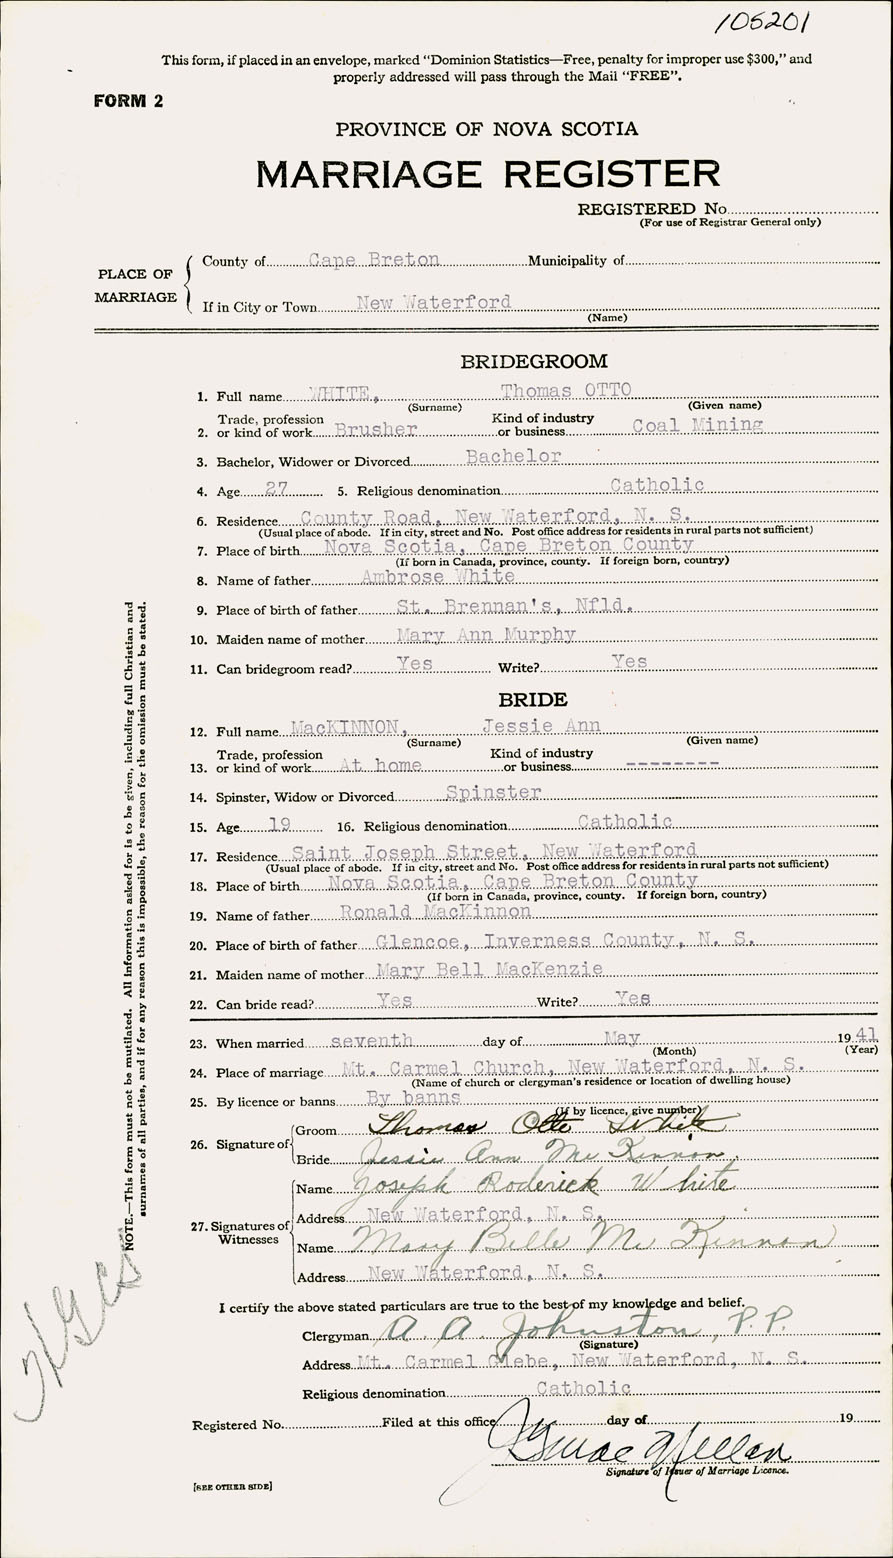 105201
This form, if placed in an envelope, marked "Dominion Statistics—Free, penalty for improper use $300," and
properly addressed will pass through the Mail "FREE".
FORM 2
PROVINCE OF NOVA SCOTIA
MARRIAGE REGISTER
REGISTERED No.
(For use of Registrar General only)
PLACE OF MARRIAGE
County of Cape Breton Municipality of
If in City or Town New Waterford
(Name)
BRIDEGROOM
1. Full name WHITE, Thomas OTTO
(Surname) (Given name)
Trade, profession Kind of industry
2. or kind of work Brusher or business Coal Mining
3. Bachelor, Widower or Divorced Bachelor
4. Age 27 5. Religious denomination Catholic
6. Residence County Road, New Waterford, N. S.
(Usual place of abode. If in city, street and No. Post office address for residents in rural parts not sufficient)
7. Place of birth Nova Scotia, Cape Breton County
(If born in Canada, province, county. If foreign born, country)
8. Name of father Ambrose White
9. Place of birth of father St. Brennan's, Nfld.
10. Maiden name of mother Mary Ann Murphy
11. Can bridegroom read? Yes Write? Yes
BRIDE
12. Full name MacKINNON, Jessie Ann
(Surname) (Given name)
Trade, profession Kind of industry
13. or kind of work At home or business --------
14. Spinster, Widow or Divorced Spinster
15. Age 19 16. Religious denomination Catholic
17. Residence Saint Joseph Street, New Waterford
(Usual place of abode. If in city, street and No. Post office address for residents in rural parts not sufficient)
18. Place of birth Nova Scotia, Cape Breton County
(If born in Canada, province, county. If foreign born, country)
19. Name of father Ronald MacKinnon
20. Place of birth of father Glencoe, Inverness County, N. S.
21. Maiden name of mother Mary Bell MacKenzie
22. Can bride read? Yes Write? Yes
23. When married seventh day of May 1941
(Month) (Year)
24. Place of marriage Mt. Carmel Church, New Waterford, N. S.
(Name of church or clergyman's residence or location of dwelling house)
25. By licence or banns By banns
(If by licence, give number)
26. Signature of
Groom Thomas Otto White
Bride Jessie Ann McKinnon.
27. Signatures of Witnesses
Name Joseph Roderick White
Address New Waterford, N. S.
Name Mary Belle McKinnon
Address New Waterford, N. S.
I certify the above stated particulars are true to the best of my knowledge and belief.
Clergyman A. A. Johnston, P.P.
(Signature)
Address Mt. Carmel Glebe, New Waterford, N. S.
Religious denomination Catholic
Registered No. Filed at this office day of 19
Signature of Issuer of Marriage Licence.
[SEE OTHER SIDE]
NOTE.—This form must not be mutilated. All information asked for is to be given, including full Christian and
surnames of all parties, and if for any reason this is impossible, the reason for the omission must be stated.